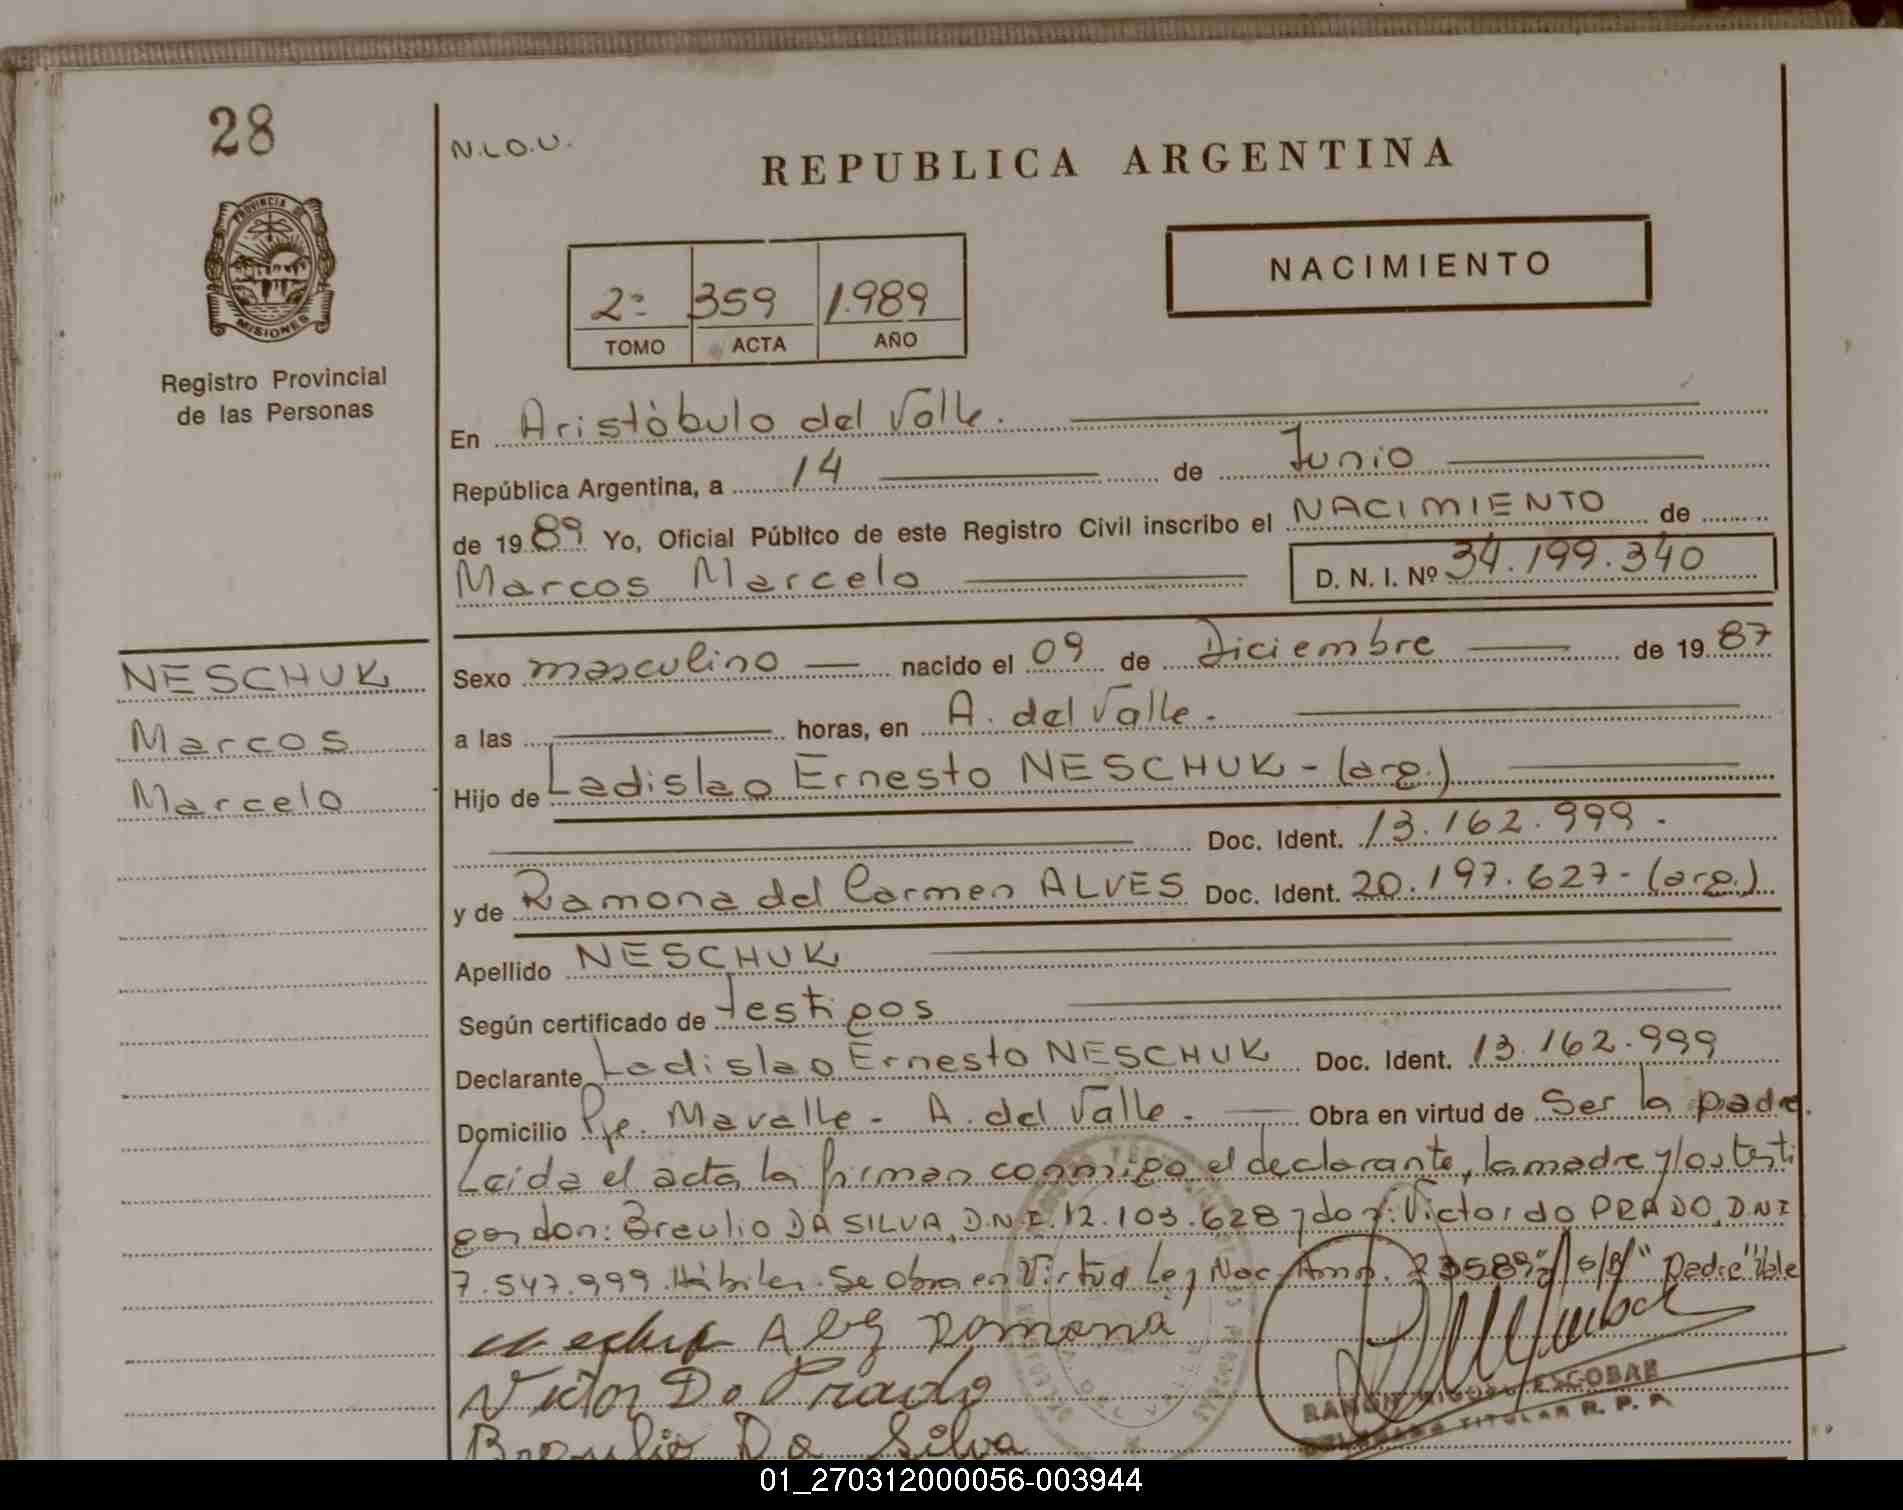 28
N.L.O.U.
REPUBLICA ARGENTINA
PROVINCIA DE
MISIONES
Registro Provincial
de las Personas
NACIMIENTO
2º 359 1.989
TOMO ACTA AÑO
En Aristóbulo del Valle.
República Argentina, a 14 de Junio
de 1989 Yo, Oficial Público de este Registro Civil inscribo el NACIMIENTO de
Marcos Marcelo D. N. I. Nº 34.199.340
NESCHUK
Marcos
Marcelo
Sexo masculino nacido el 09 de Diciembre de 1987
a las horas, en A. del Valle.
Hijo de Ladislao Ernesto NESCHUK - (arg.)
Doc. Ident. 13.162.999.
y de Ramona del Carmen ALVES Doc. Ident. 20.197.627 - (arg.)
Apellido NESCHUK
Según certificado de testigos
Declarante Ladislao Ernesto NESCHUK Doc. Ident. 13.162.999
Domicilio Pje. Mavalle - A. del Valle - Obra en virtud de Ser la padre.
Leida el acta la firman conmigo el declarante, la madre y los testi
gos don: Braulio DA SILVA, D.N.I. 12.103.628 y don: Victor do PRADO, D.N.I
7.547.999. Hábiles. Se obra en Virtud Ley Nac. 23589 s/r "padre" Vale
Victor Do Prado
Braulio Da Silva
RAMON MIGUEL ESCOBAR
DELEGADO TITULAR R. P. P.
01_270312000056-003944